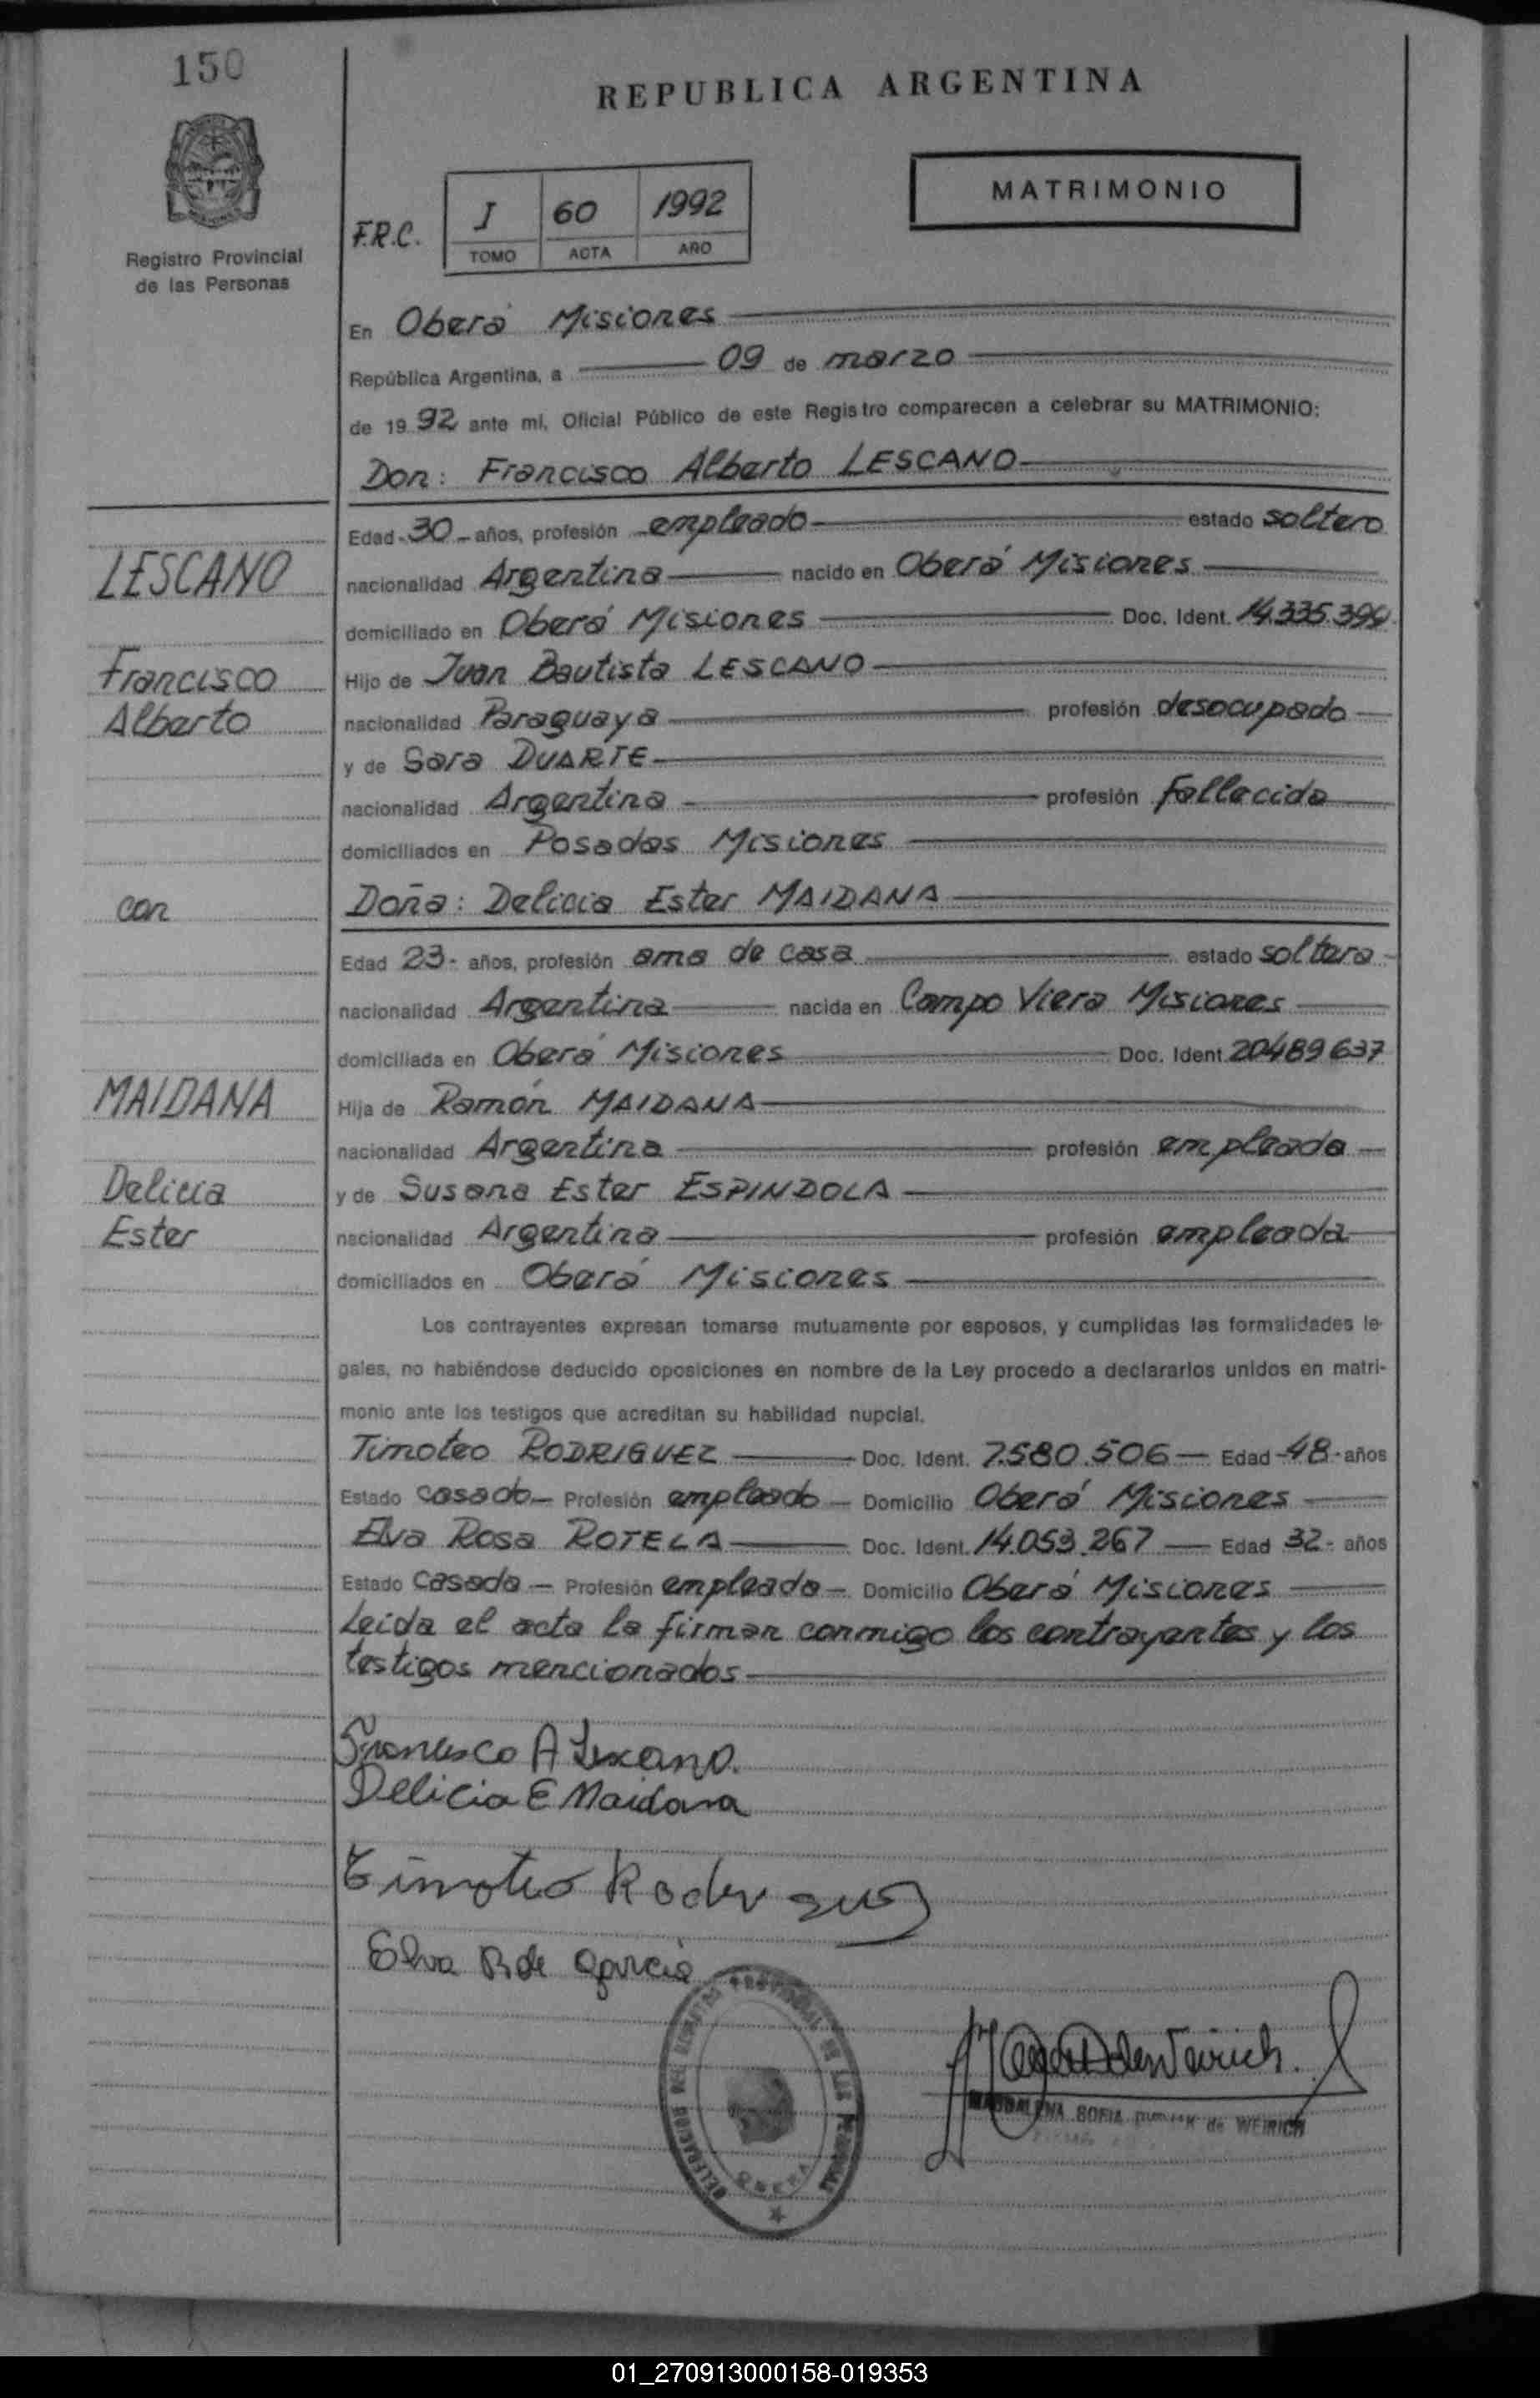 150
REPUBLICA ARGENTINA
MATRIMONIO
Registro Provincial
de las Personas
F.R.C.
I 60 1992
TOMO ACTA AÑO
En Oberá Misiones
República Argentina, a 09 de marzo
de 1992 ante mi, Oficial Público de este Registro comparecen a celebrar su MATRIMONIO:
Don: Francisco Alberto LESCANO
Edad 30 años, profesión empleado estado soltero
LESCANO
nacionalidad Argentina nacido en Oberá Misiones
domiciliado en Oberá Misiones Doc. Ident. 14.335.399
Francisco
Hijo de Juan Bautista LESCANO
Alberto
nacionalidad Paraguaya profesión desocupado
y de Sara DUARTE
nacionalidad Argentina profesión Fallecida
domiciliados en Posadas Misiones
con
Doña: Delicia Ester MAIDANA
Edad 23 años, profesión ama de casa estado soltera
nacionalidad Argentina nacida en Campo Viera Misiones
domiciliada en Oberá Misiones Doc. Ident. 20489637
MAIDANA
Hija de Ramón MAIDANA
nacionalidad Argentina profesión empleado
Delicia
y de Susana Ester ESPINDOLA
Ester
nacionalidad Argentina profesión empleada
domiciliados en Oberá Misiones
Los contrayentes expresan tomarse mutuamente por esposos, y cumplidas las formalidades le-
gales, no habiéndose deducido oposiciones en nombre de la Ley procedo a declararlos unidos en matri-
monio ante los testigos que acreditan su habilidad nupcial.
Timoteo RODRIGUEZ Doc. Ident. 7.580.506 Edad 48 años
Estado casado Profesión empleado Domicilio Oberá Misiones
Elva Rosa ROTELA Doc. Ident. 14.053.267 Edad 32 años
Estado Casada Profesión empleada Domicilio Oberá Misiones
Leida el acta la firman conmigo los contrayentes y los
testigos mencionados
Francisco A Lescano.
Delicia E Maidana
Timoteo Rodriguez
Elva R de Garcia
DELEGACION DEL REGISTRO PROVINCIAL DE LAS PERSONAS
OBERA
MAGDALENA SOFIA de WEIRICH
01_270913000158-019353